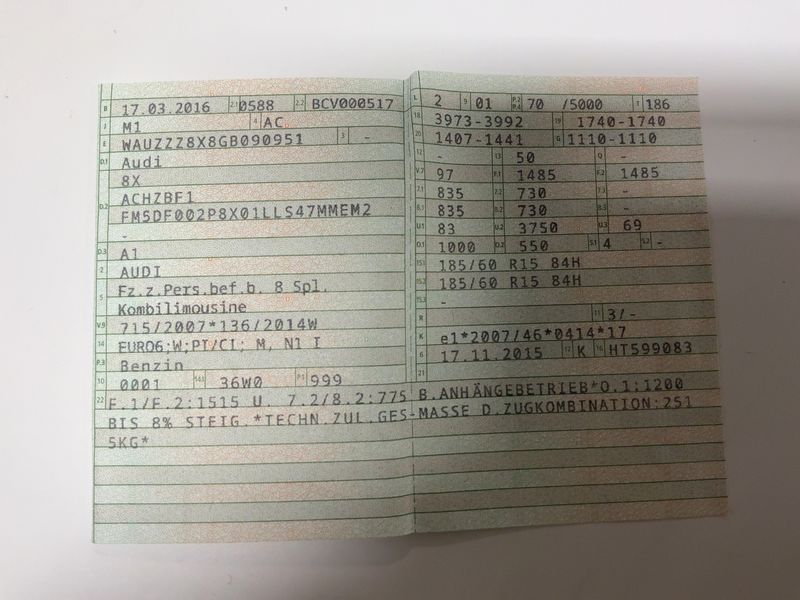 B 17.03.2016 2.1 0588 2.2 BCV000517
J M1 4 AC
E WAUZZZ8X8GB090951 3 -
D.1 Audi
8X
D.2 ACHZBF1
FM5DF002P8X01LLS47MMEM2
-
D.3 A1
2 AUDI
5 Fz.z.Pers.bef.b. 8 Spl.
Kombilimousine
V.9 715/2007*136/2014W
14 EURO6;W;PI/CI; M, N1 I
P.3 Benzin
10 0001 14.1 36W0 P.1 999
L 2 9 01 P.2 P.4 70 /5000 T 186
18 3973-3992 19 1740-1740
20 1407-1441 G 1110-1110
12 - 13 50 Q -
V.7 97 F.1 1485 F.2 1485
7.1 835 7.2 730 7.3 -
8.1 835 8.2 730 8.3 -
U.1 83 U.2 3750 U.3 69
O.1 1000 O.2 550 S.1 4 S.2 -
15.1 185/60 R15 84H
15.2 185/60 R15 84H
15.3 -
R 11 3/-
K e1*2007/46*0414*17
6 17.11.2015 17 K 16 HT599083
21
22 F.1/F.2:1515 U. 7.2/8.2:775 B.ANHÄNGEBETRIEB*O.1:1200
BIS 8% STEIG.*TECHN.ZUL.GES-MASSE D.ZUGKOMBINATION:251
5KG*